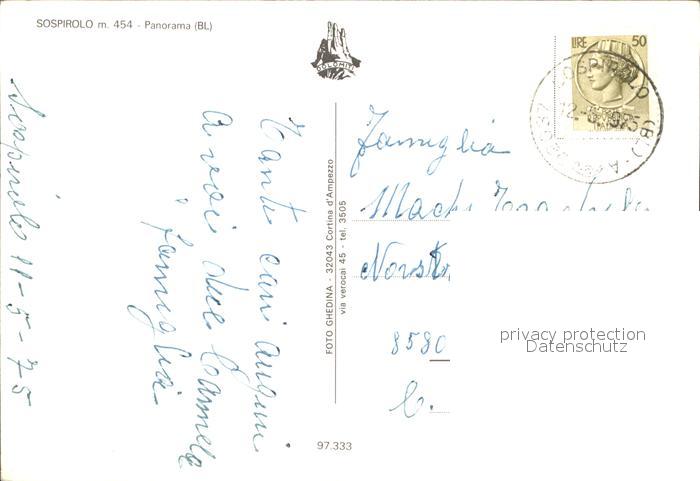 SOSPIROLO m. 454 - Panorama (BL)
DOLOMITI
LIRE 50
SOSPIROLO (BL)
Sospirolo 11-5-75
Tanti cari auguri
a voi due
famiglia
FOTO GHEDINA - 32043 Cortina d'Ampezzo
via verocai 45 - tel. 3505
Famiglia
8580
privacy protection
Datenschutz
97.333